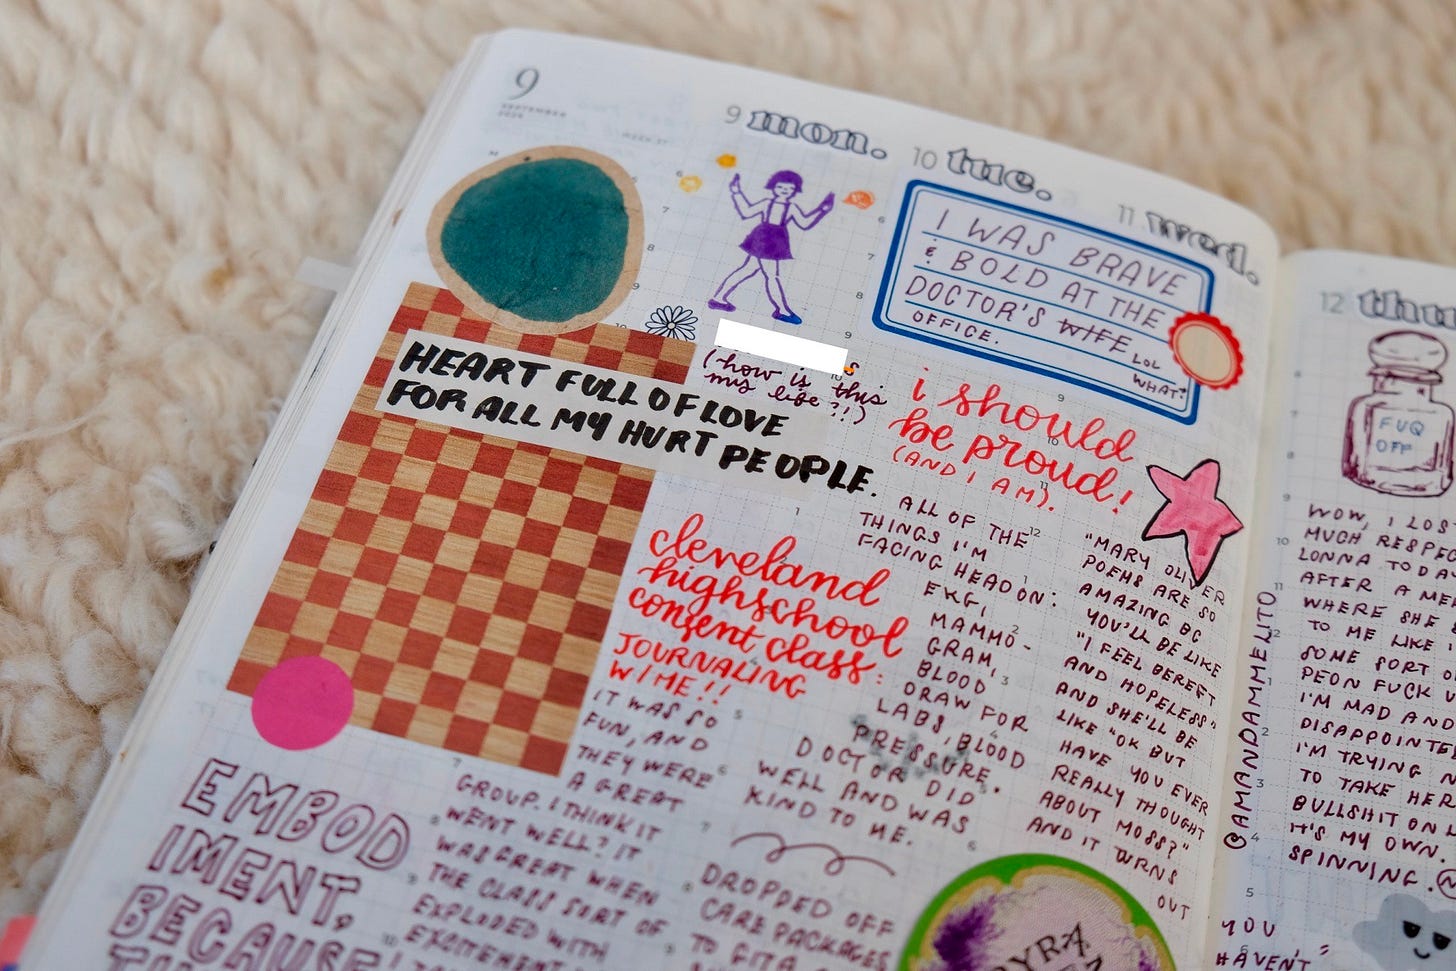 9
SEPTEMBER
9 mon.
10 tue.
11 wed.
12 thu
I WAS BRAVE
& BOLD AT THE
DOCTOR'S WIFE
OFFICE.
LOL
WHAT?
HEART FULL OF LOVE
FOR ALL MY HURT PEOPLE.
(how is this
my life?!)
cleveland
highschool
consent class:
JOURNALING
W/ME!!
IT WAS SO
FUN, AND
THEY WERE
A GREAT
GROUP. I THINK IT
WENT WELL? IT
WAS GREAT WHEN
THE CLASS SORT OF
EXPLODED WITH
EXCITEMENT
EMBOD
IMENT,
BECAUSE
i should
be proud!
(AND I AM).
ALL OF THE
THINGS I'M
FACING HEAD ON:
EKG,
MAMMO-
GRAM,
BLOOD
DRAW FOR
LABS, BLOOD
PRESSURE.
DOCTOR DID
WELL AND WAS
KIND TO ME.
DROPPED OFF
CARE PACKAGES
TO GITA &
"MARY OLIVER
POEMS ARE SO
AMAZING BC
YOU'LL BE LIKE
"I FEEL BEREFT
AND HOPELESS"
AND SHE'LL BE
LIKE "OK BUT
HAVE YOU EVER
REALLY THOUGHT
ABOUT MOSS?"
AND IT TURNS
OUT
@AMANDAMMELITO
FUQ
OFF
WOW, I LOS
MUCH RESPEC
LONNA TODA
AFTER A ME
WHERE SHE
TO ME LIKE I
SOME SORT O
PEON FUCK U
I'M MAD AND
DISAPPOINTE
I'M TRYING N
TO TAKE HER
BULLSHIT ON
IT'S MY OWN.
SPINNING.
YOU
HAVEN'T